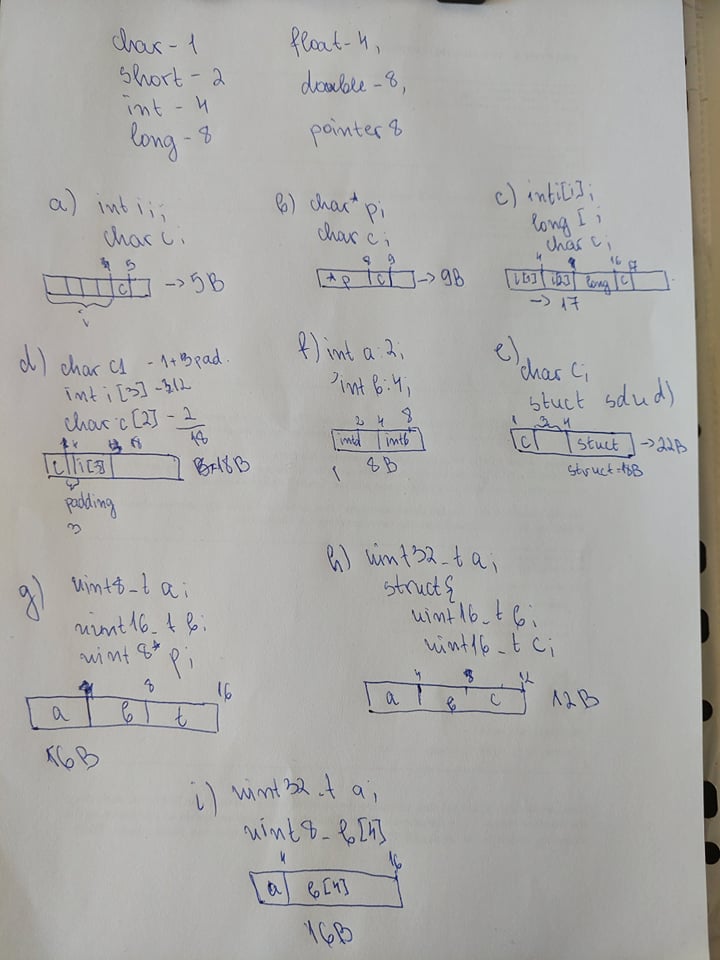 char - 1
short - 2
int - 4
long - 8
float - 4,
double - 8,
pointer 8
a) int i;
char c;
4 5
c → 5B
i
b) char* p;
char c;
8 9
*p c → 9B
c) int i[i];
long [ ;
char c;
4 8 16 17
i[1] i[2] long c
→ 17
d) char c1 - 1+3 pad.
int i[3] - 12
char c[2] - 2
18
4
i[3
18B
padding
3
f) int a:2;
int b:4;
2 4 8
inta intb
8B
e)
char c;
stuct sdu d)
1 3 4
c stuct → 22B
struct = 18B
g) uint8_t a;
uint16_t b;
uint 8* p;
8 16
a b t
16B
h) uint32_t a;
struct{
uint16_t b;
uint16_t c;
4 8 12
a b c 12B
i) uint32_t a;
uint8_b[4]
4 16
a b[4]
16B